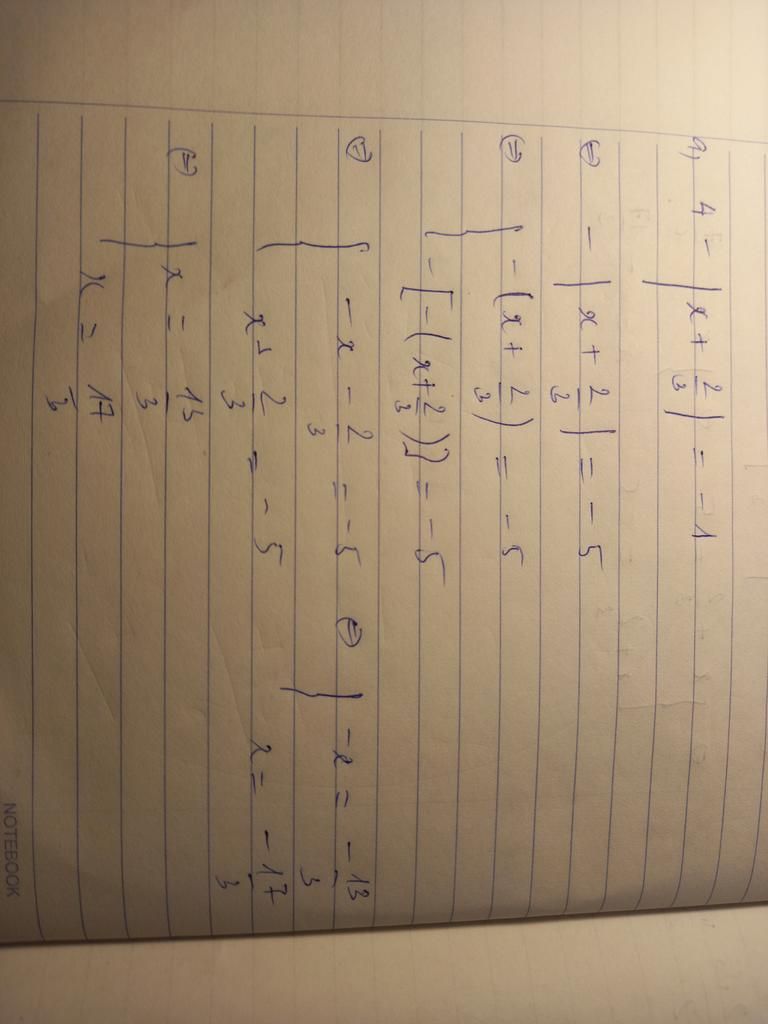 a, 4 - | x + 2/3 | = - 1
⇔ - | x + 2/3 | = - 5
⇔ { - ( x + 2/3 ) = - 5
- [ - ( x + 2/3 ) ] = - 5
⇔ { - x - 2/3 = - 5 ⇔ { - x = - 13/3
x + 2/3 = - 5 x = - 17/3
⇔ { x = 13/3
x = 17/3
NOTEBOOK